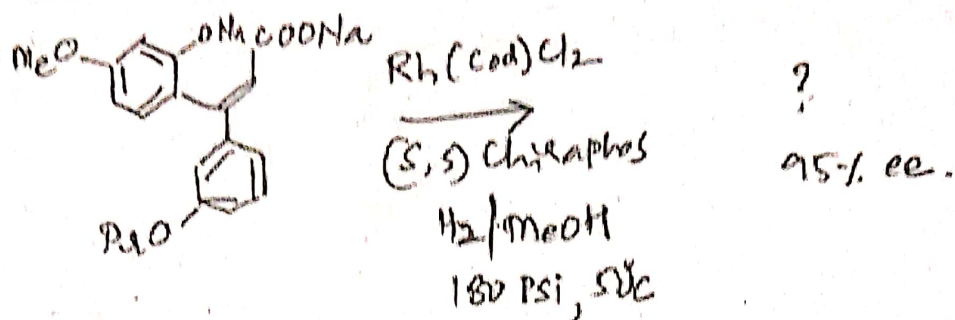 MeO
ONa COONa
Rh(Cod)Cl2
(S,S) Chiraphos
H2/MeOH
180 PSi, 50°C
?
95% ee.